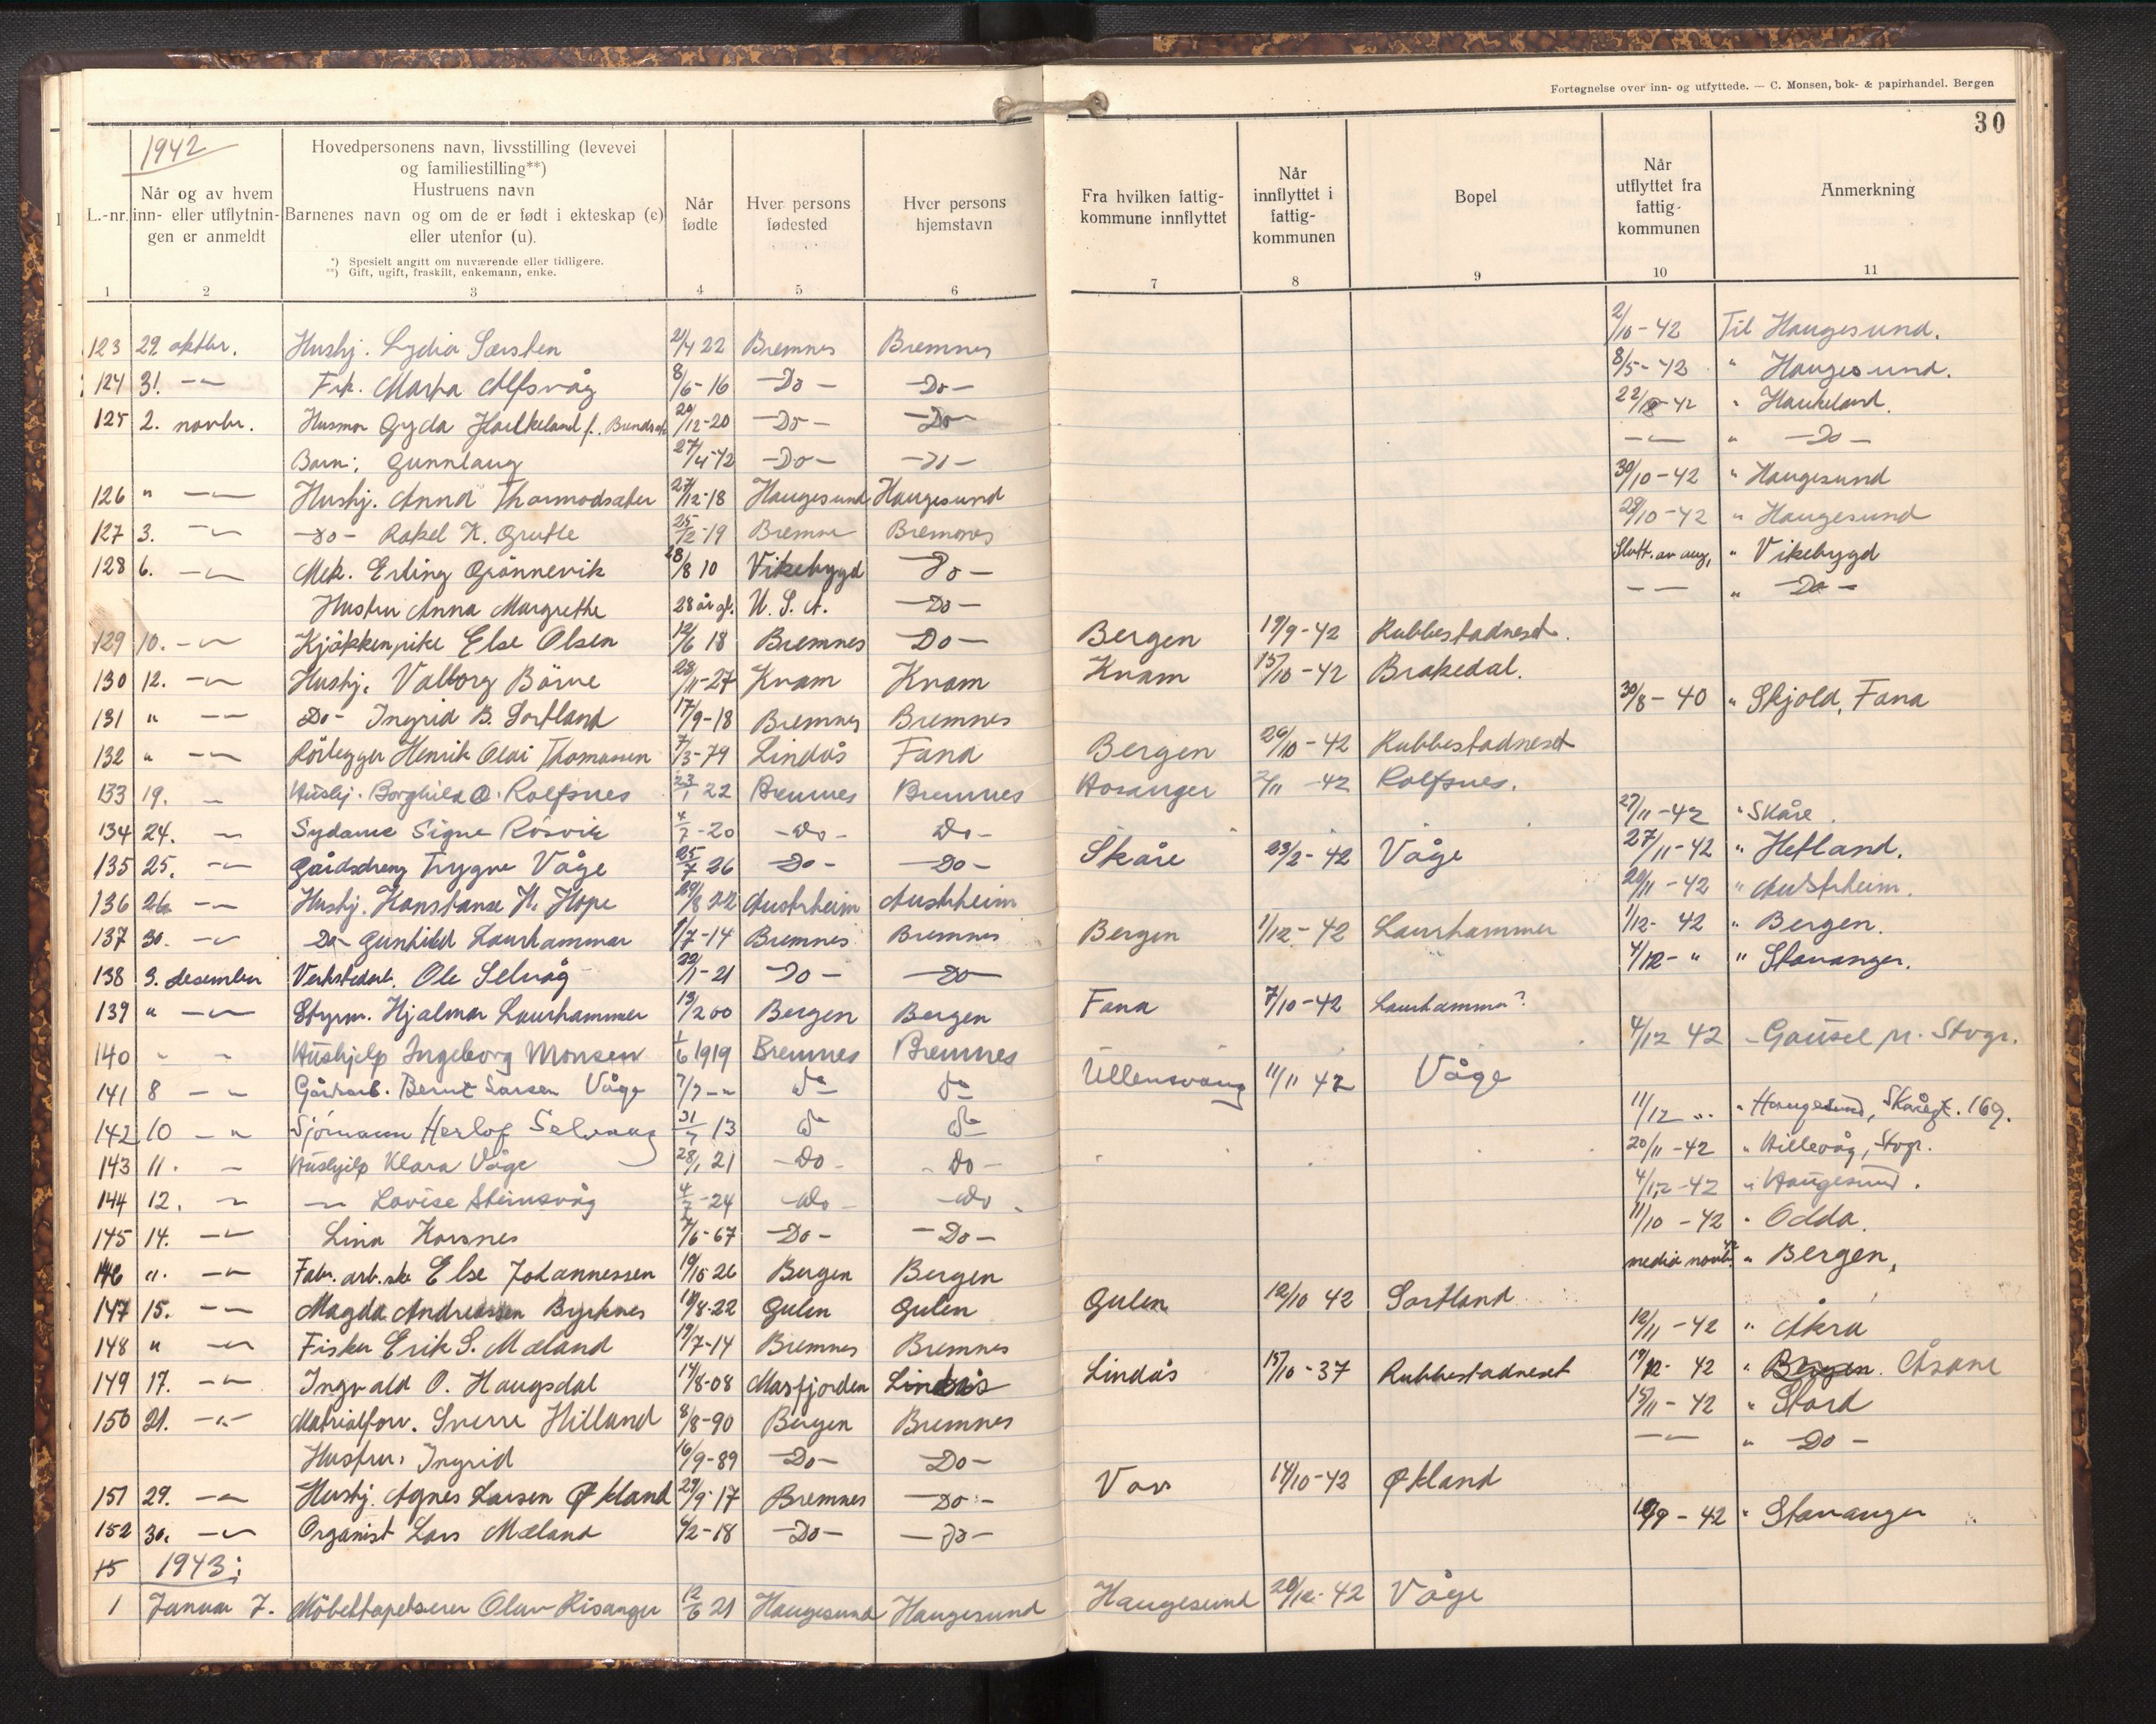 Fortegnelse over inn- og utfyttede. — C. Monsen, bok- & papirhandel. Bergen
30
1942
L.-nr. Når og av hvem inn- eller utflytningen er anmeldt Hovedpersonens navn, livsstilling (levevei og familiestilling**) Hustruens navn Barnenes navn og om de er født i ekteskap (e) eller utenfor (u). Når fødte Hver persons fødested Hver persons hjemstavn Fra hvilken fattigkommune innflyttet Når innflyttet i fattigkommunen Bopel Når utflyttet fra fattigkommunen Anmerkning
*) Spesielt angitt om nuværende eller tidligere.
**) Gift, ugift, fraskilt, enkemann, enke.
1 2 3 4 5 6 7 8 9 10 11
123 29. oktbr. Hushj. Lydia Særsten 21/4 22 Bremnes Bremnes 2/10-42 Til Haugesund.
124 31. -"- Frk. Marta Alfsvåg 8/6-16 -Do- -Do- 8/5-42 " Haugesund.
125 2. novbr. Husmor Gyda Haukeland f. 20/12-20 -Do- -Do- " Haukeland.
Barn: Gunnlaug 27/4-42 -Do- -Do- -"- " -Do-
126 " -"- Hushj. Anna Thormodsæter 27/12-18 Haugesund Haugesund 30/10-42 " Haugesund
127 3. -"- -Do- Rakel K. Grutle 25/2-19 Bremnes Bremnes 28/10-42 " Haugesund
128 6. -"- Mek. Erling Grönnevik 28/8 10 Vikebygd -Do- Slutt. av aug. " Vikebygd
Hustru Anna Margrethe 28 år gl. U. S. A. -Do- -"- " -Do-
129 10. -"- Kjökkenpike Else Olsen 12/6 18 Bremnes -Do- Bergen 19/9-42 Rubbestadneset.
130 12. -"- Hushj. Valborg Börve 28/11-27 Kvam Kvam Kvam 15/10-42 Brakedal.
131 " -"- -Do- Ingrid B. Sortland 17/9-18 Bremnes Bremnes 30/8-40 " Skjold, Fana
132 " -"- Rörlegger Henrik Olai Thomassen 7/3-79 Lindås Fana Bergen 26/10-42 Rubbestadneset
133 19. " Hushj. Borghild O. Rolfsnes 23/1 22 Bremnes Bremnes Hosanger 2/11-42 Rolfsnes.
134 24. " Sydame Signe Rösvik 4/7-20 -Do- Do- 27/11-42 " Skåre.
135 25. -"- Gårdsdreng Trygve Våge 25/7 26 -Do- -Do- Skåre 23/2-42 Våge 27/11-42 " Hetland.
136 26 -"- Hushj. Konstanse H. Hope 29/8 22 Austrheim Austrheim 20/11-42 " Austrheim.
137 30. -"- -Do- Gunhild Laurhammer 1/7-14 Bremnes Bremnes Bergen 1/12-42 Laurhammer 1/12-42 " Bergen.
138 3. desember Verkstedarb. Ole Selvåg 22/1-21 -Do- -Do- 4/12-" " Stavanger.
139 " -"- Styrm. Hjalmar Laurhammer 13/2 00 Bergen Bergen Fana 7/10-42 Laurhammer?
140 " " Hushjelp Ingeborg Monsen 1/6 1919 Bremnes Bremnes 4/12 42 - Gausel pr. Stvgr.
141 8 - " Gårdsarb. Bernt Larsen Våge 7/7-" do do Ullensvang 11/11 42 Våge
142 10 - " Sjömann Herlof Selvaag 31/7 13 do do 11/12 " " Haugesund, Skåregt. 169.
143 11. " Hushjelp Klara Våge 28/1 21 -Do- -Do- 20/11-42 " Hillevåg, Stvgr.
144 12. " -"- Lovise Steinsvåg 4/7-24 -Do- -Do- 4/12-42 " Haugesund.
145 14. -"- Lina Korsnes 7/6-67 -Do- -Do- 11/10-42 " Odda.
146 " -"- Fabr. arb.ske Else Johannessen 19/10 26 Bergen Bergen media novbr. 42 " Bergen,
147 15. -"- Magda Andreassen Byrknes 18/8-22 Gulen Gulen Gulen 12/10 42 Sortland
148 " -"- Fisker Erik S. Mæland 19/7-14 Bremnes Bremnes 12/11-42 " Åkra
149 17. -"- Ingvald O. Haugsdal 14/8-08 Masfjorden Lindås Lindås 15/10-37 Rubbestadneset 19/12-42 " Bergen. Åsane
150 21. -"- Matrialforv. Sverre Hilland 8/8-90 Bergen Bremnes 15/11-42 " Stord
Hustru: Ingrid 16/9-89 -Do- -Do- -"- " -Do-
151 29. -"- Hushj. Agnes Larsen Økland 29/9-17 Bremnes -Do- Vor 14/10-42 Økland
152 30. -"- Organist Lars Mæland 6/2-18 -Do- -Do- " Stavanger
15 1943:
1 Januar 7. Möbeltapetserer Olav Risanger 12/6 21 Haugesund Haugesund Haugesund 20/12-42 Våge